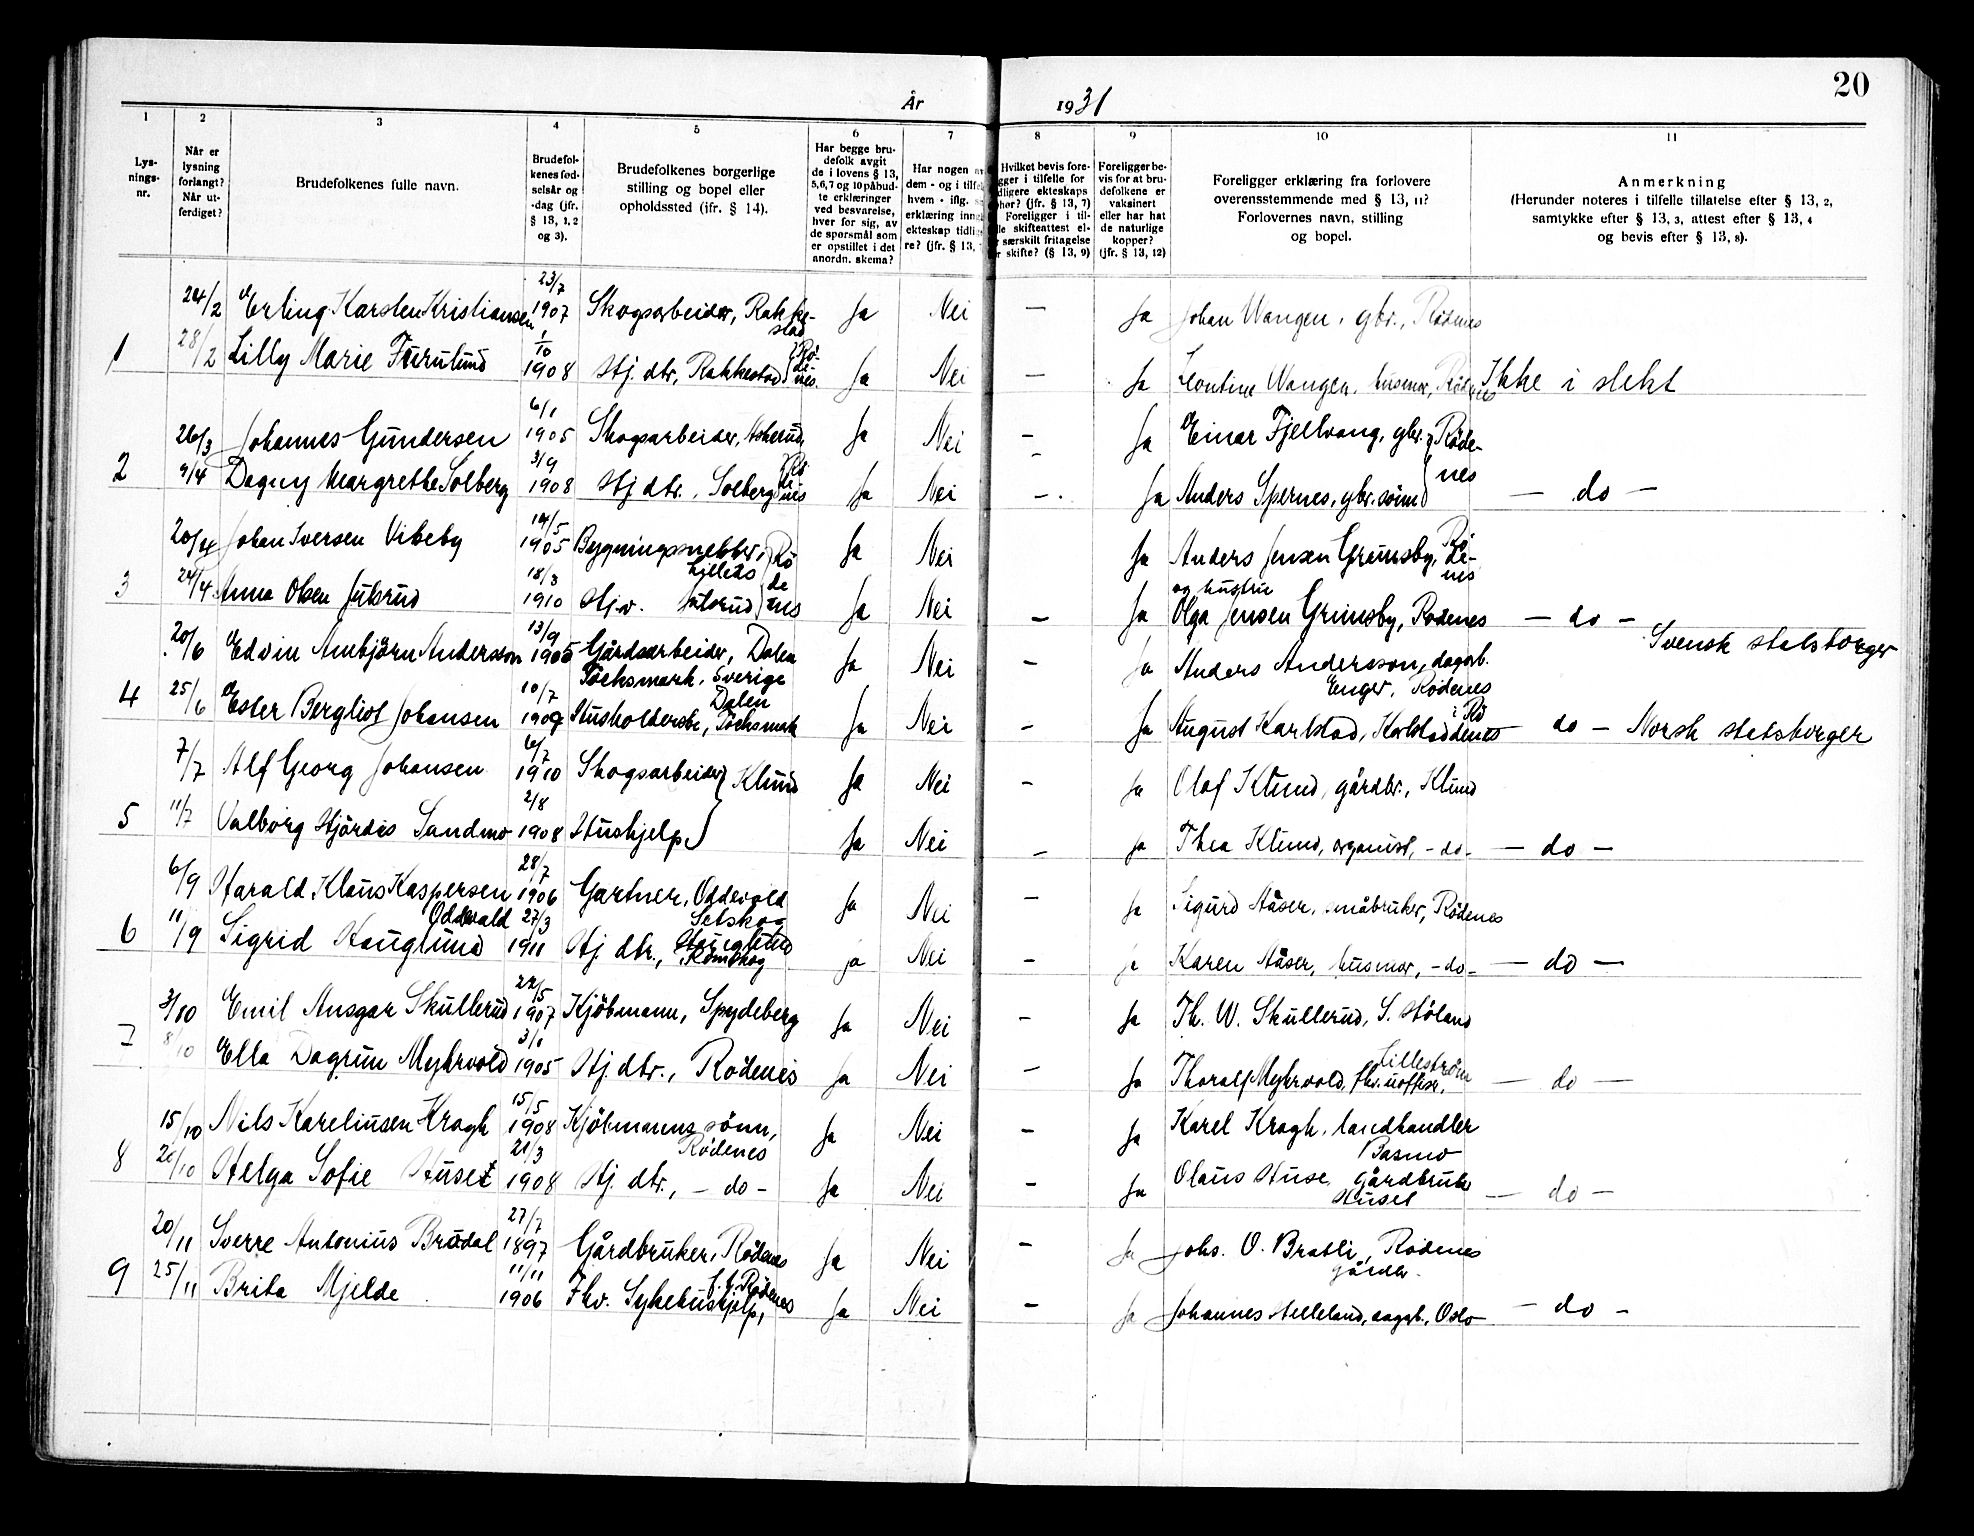 20
År 1931
1 2 3 4 5 6 7 8 9 10 11
Lys-
nings-
nr.
Når er
lysning
forlangt?
Når ut-
ferdiget?
Brudefolkenes fulle navn.
Brudefol-
kenes fød-
selsår og
-dag (jfr.
§ 13, 1, 2
og 3).
Brudefolkenes borgerlige
stilling og bopel eller
opholdssted (ifr. § 14).
Har begge bru-
defolk avgit
de i lovens § 13,
5,6,7 og 10 påbud-
te erklæringer
ved besvarelse,
hver for sig, av
de spørsmål som
er opstillet i det
anordn. skema?
Har nogen av
dem - og i tilfe
hvem - iflg.
erklæring inng
ekteskap tidlig
re? (jfr. § 13,
Hvilket bevis fore-
gger i tilfelle for
dligere ekteskaps
phør? (jfr. § 13, 7)
Foreligger i til-
lle skifteattest el-
r særskilt fritagelse
r skifte? (§ 13, 9)
Foreligger be-
vis for at bru-
defolkene er
vaksinert
eller har hat
de naturlige
kopper?
(jfr. § 13, 12)
Foreligger erklæring fra forlovere
overensstemmende med § 13, 11?
Forlovernes navn, stilling
og bopel.
Anmerkning
(Herunder noteres i tilfelle tillatelse efter § 13, 2,
samtykke efter § 13, 3, attest efter § 13, 4
og bevis efter § 13, 8).
24/2 Erling Karsten Kristiansen 23/7 1907 Skogsarbeider, Rakkestad Ja Nei — Ja Johan Wangen, gbr., Rödenes
1 28/2 Lilly Marie Furulund 1/10 1908 Hj. dtr, Rakkestad i Rödenes Ja Nei — Ja Leontine Wangen, husmor, Rödenes Ikke i slekt
26/3 Johannes Gundersen 6/1 1905 Skogsarbeider, Askerud, Ja Nei — Ja Einar Fjellvang, gbr. Rödenes
2 9/4 Dagny Margrethe Solberg 3/9 1908 Hj dtr., Solberg i Rödenes Ja Nei — Ja Anders Spernes, gbr. sönn — do —
20/4 Johan Iversen Vibeby 14/5 1905 Bygningssnekker, Rödenes Ja Nei Ja Anders Jensen Grimsby, Rödenes
og hustru
3 24/4 Anna Olsen Julsrud 18/3 1910 Hj.v. Julsrud Ja Nei — Ja Olga Jensen Grimsby, Rödenes — do —
20/6 Edvin Annbjörn Andersson 13/9 1905 Gårdsarbeider, Dalen Töcksmark, Sverige Ja Nei — Ja Anders Andersson, dagarb. Enger, Rödenes Svensk statsborger
4 25/6 Ester Bergliot Johansen 10/7 1909 Husholderske, Dalen Töcksmark Ja Nei — Ja August Karlstad, Karlstad i Rödenes — do — Norsk statsborger
7/7 Alf Georg Johansen 6/7 1910 Skogsarbeider Klund Ja Nei — Ja Olaf Klund, gårdbr., Klund
5 11/7 Valborg Hjördis Sandmo 2/8 1908 Hushjelp Ja Nei — Ja Thea Klund, organist, - do - — do —
6/9 Harald Klaus Kaspersen Oddevald 28/7 1906 Gartner, Oddevold Setskog Ja Nei — Ja Sigurd Aaser, småbruker, Rödenes
6 11/9 Sigrid Hauglund 27/3 1911 Hj. dtr., Hauglund Römskog ja Nei — ja Karen Aaser, husmor, - do - — do —
3/10 Emil Ansgar Skullerud 22/5 1907 Kjöbmann, Spydeberg Ja Nei — Ja Th. W. Skullerud, S. Höland
7 8/10 Ella Dagrun Myhrvold 3/1 1905 Hj. dtr., Rödenes Ja Nei — Ja Thoralf Myhrvold, fhv. uoffiser, Lilleström — do —
15/10 Nils Kareliusen Kragh 15/5 1908 Kjöbmannssönn, Rödenes Ja Nei — Ja Karel Kragh, landhandler Basmo
8 20/10 Helga Sofie Huset 21/3 1908 Hj. dtr., - do - Ja Nei — Ja Olaus Huse, gårdbruk Huset — do —
20/11 Sverre Antonius Brudal 27/7 1897 Gårdbruker, Rödenes Ja Nei — Ja Johs. O. Bratli, Rödenes gårdbr.
9 25/11 Brita Mjelde 11/11 1906 Fhv. Sykehushjelp, f. t. Rödenes Ja Nei — Ja Johannes Helleland, dagarb., Oslo — do —